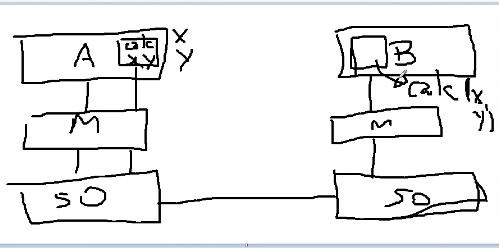 A
calc
x y
x
y
M
SO
B
calc(x,
y)
M
SO